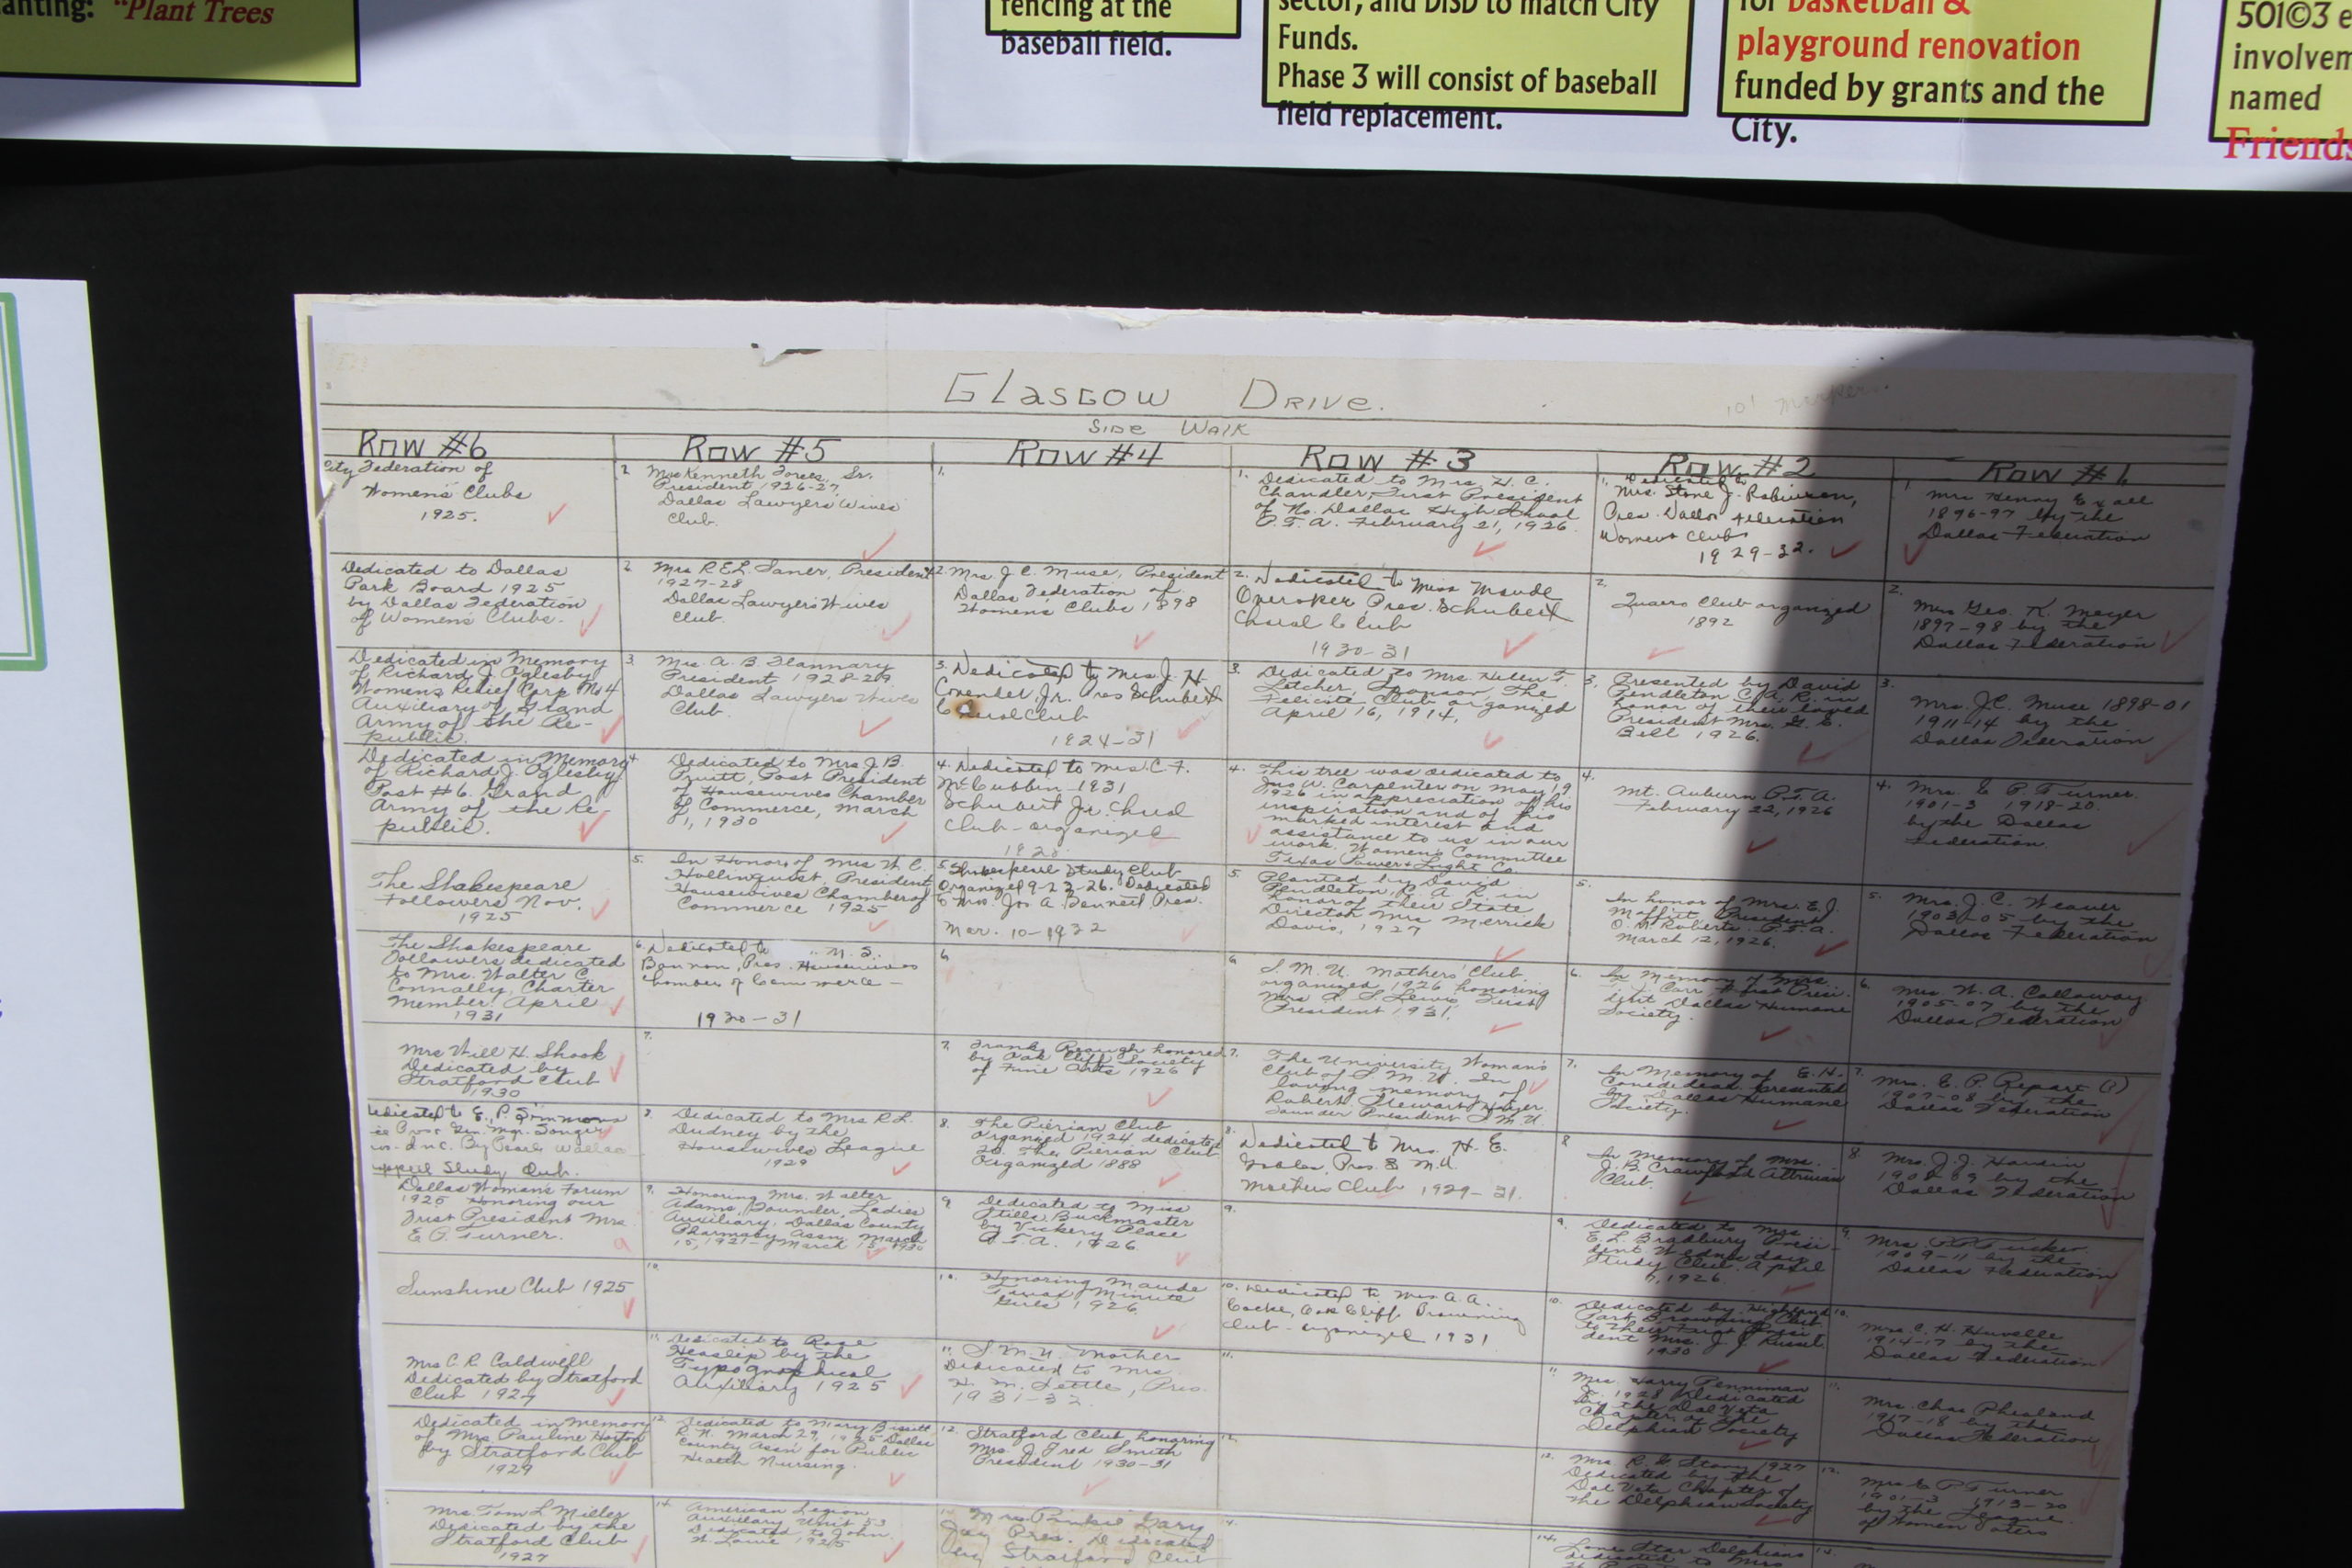 anting: "Plant Trees
fencing at the
baseball field.
sector, and DISD to match City
Funds.
Phase 3 will consist of baseball
field replacement.
for basketball &
playground renovation
funded by grants and the
City.
501©3
involvem
named
Friends
Glasgow Drive.
10'
Side Walk
Row #6
City Federation of
Women's Clubs
1925.
Dedicated to Dallas
Park Board 1925
by Dallas Federation
of Women's Clubs.
Dedicated in Memory
of Richard J. Oglesby
Womens Relief Corp No 4
Auxiliary of Grand
Army of the Re-
public.
Dedicated in Memory
of Richard J. Oglesby
Post #6. Grand
Army of the Re
public.
The Shakespeare
Followers Nov.
1925
The Shakespeare
Followers dedicated
to Mrs. Walter C.
Connally, Charter
Member. April
1931
Mrs Will H. Shook
Dedicated by
Stratford Club
1930
Dedicated to E. P. Simmons
Study Club.
Dallas Woman's Forum
1925 Honoring our
First President Mrs.
E. P. Turner.
Sunshine Club 1925
Mrs C. R. Caldwell
Dedicated by Stratford
Club 1927
Dedicated in memory
of Mrs. Pauline Horton
by Stratford Club
1929
Mrs. Tom L Miller
Dedicated by the
Stratford Club
1927
Row #5
Mrs Kenneth Sr.
President 1926-27
Dallas Lawyers Wives
Club.
2. Mrs R.E.L. Saner, President
1927-28
Dallas Lawyers Wives
Club.
3. Mrs. A. B. Flannary
President 1928-29
Dallas Lawyers Wives
Club.
4. Dedicated to Mrs J. B.
Pruitt, Past President
of Housewives Chamber
of Commerce, March
1, 1930
5. In Honor of Mrs W. C.
Hollinquist, President
Housewives Chamber of
Commerce 1925
6. Dedicated to M. S.
Bannon, Pres. Housewives
Chamber of Commerce -
1930-31
7.
8. Dedicated to Mrs R. L.
Dudney by the
Housewives League
1929
9. Honoring Mrs. Walter
Adams, Founder, Ladies
Auxiliary, Dallas County
Pharmacy Assn. March
15, 1921 - March 15 1930
10.
11. Dedicated to Rose
Heaslip by the
Typographical
Auxiliary 1925
12. Dedicated to Mary
R. N. March 29, 1925 Dallas
County Assn for Public
Health Nursing.
14. American Legion
Auxiliary Unit 53
Dedicated to John
W. Lowe 1925
Row #4
1.
2. Mrs. J. C. Muse, President
Dallas Federation of
Womens Clubs 1898
3. Dedicated to Mrs. J. H.
Jr. Pres Schubert
Choral Club
1924-31
4. Dedicated to Mrs. C. F.
McCubbin - 1931
Schubert Jr. Choral
Club - organized
5. Shakespeare Study Club
Organized 9-23-26. Dedicated
to Mrs. Jos. A. Bennett Pres.
Mar. 10-1932
6.
7. Frank Reaugh honored
by Oak Cliff Society
of Fine Arts 1926
8. The Pierian Club
Organized 1924, dedicated
to The Pierian Club
Organized 1888
9. Dedicated to Miss
Stella Buckmaster
by Vickery Place
P. T. A. 1926
10. Honoring Maude
Minute
Girls 1926
11. S. M. U. Mother
Dedicated to Mrs.
H. M. Settle, Pres.
1931-32.
12. Stratford Club honoring
Mrs. J. Fred Smith
President 1930-31
Mrs. Pinkie Gary
Pres. Dedicated
by Stratford Club
Row #3
1. Dedicated to Mrs H. C.
Chandler, First President
of No. Dallas High School
P. T. A. February 21, 1926
2. Dedicated to Miss Maude
Pres. Schubert
Choral Club
1930-31
3. Dedicated to Mrs. Helen F.
Letcher, Sponsor, The
Felicite Club organized
April 16, 1914.
4. This tree was dedicated to
Jno W. Carpenter on May 19
1926 in appreciation of his
inspiration and of his
marked interest and
assistance to us in our
work. Women's Committee
Texas Power & Light Co.
5. Planted by David
Pendleton, C. A. R. in
honor of their State
Director Mrs Merrick
Davis, 1927
6. S. M. U. Mothers' Club.
organized 1926 honoring
Mrs R. S. Lewis First
President 1931.
7. The University Woman's
Club of S. M. U. In
loving memory of
Robert Stewart Hyer.
Founder President S. M. U.
8. Dedicated to Mrs. H. E.
Nobles, Pres. S. M. U.
Mothers Club 1929-31.
9.
10. Dedicated to Mrs. A. A.
Cocke, Oak Cliff Browning
Club - organized 1931
11.
12.
14.
Row #2
1. Dedicated to
Mrs. Stone J. Robinson,
Pres. Dallas Federation
Womens Clubs
1929-32.
2. Quaero Club organized
1892
3. Presented by David
Pendleton C. A. R. in
honor of their loved
President Mrs. G. E.
Bell 1926.
4. Mt. Auburn P. T. A.
February 22, 1926
5. In honor of Mrs. E. J.
Moffitt, President
O. M. Roberts P. T. A.
March 12, 1926.
6. In Memory of Mrs.
Carr First Presi-
dent Dallas Humane
Society.
7. In Memory of E. H.
presented
by Dallas Humane
Society.
8. In memory of Mrs.
J. B. Crawford
Club.
9. Dedicated to Mrs
E. L. Bradbury Presi-
dent Wednesday
Study Club. April
7, 1926.
10. Dedicated by Highland
Park Browning Club
to their First Presi
dent Mrs. J. J. Russell
1930
11. Mrs. Harry Penniman
Jr. 1928 Dedicated
by the Dal Veta
Chapter of the
Delphian Society
12. Mrs R. G. Story 1927
Dedicated by the
Dal Veta Chapter of
the Delphian Society
14. Lone Star Delphians
dedicated to Mrs
Row #1
1. Mrs Henry Exall
1896-97 by the
Dallas Federation
2. Mrs Geo. K. Meyer
1897-98 by the
Dallas Federation
3. Mrs. J.C. Muse 1898-01
1911-14 by the
Dallas Federation
4. Mrs. E. P. Turner.
1901-3 1918-20.
by the Dallas
Federation.
5. Mrs. J. C. Weaver
1903-05 by the
Dallas Federation
6. Mrs. W. A. Callaway
1905-07 by the
Dallas Federation
7. Mrs. E. P.
1907-08 by the
Dallas Federation
8. Mrs. J. J. Hardin
1908-09 by the
Dallas Federation
9. Mrs. P. P. Tucker
1909-11 by the
Dallas Federation
10. Mrs. C. H. Huvelle
1914-17 by the
Dallas Federation
11. Mrs. Chas
1917-18 by the
Dallas Federation
12. Mrs E P Turner
1901-3 1913-20
by the League
of Women Voters